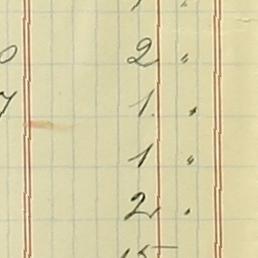 1 "
0 2 "
7 1 "
1 "
2 "
15